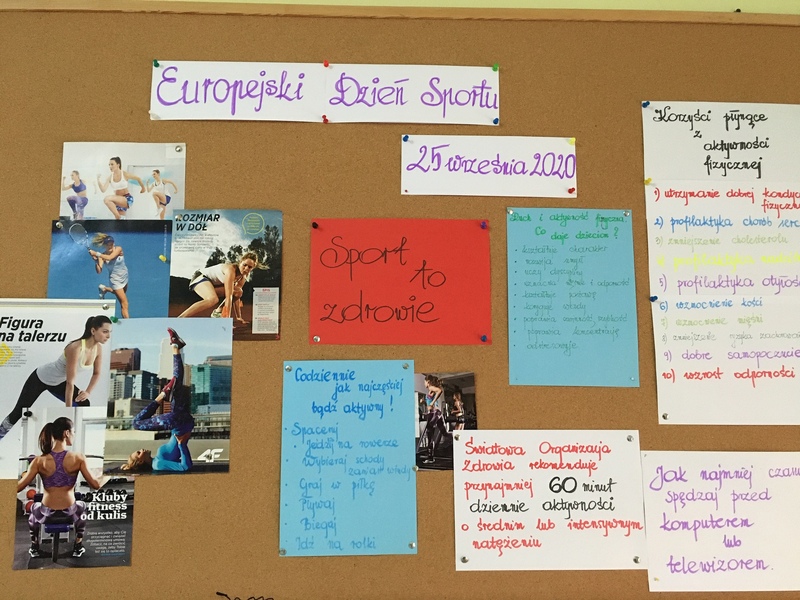 Europejski Dzień Sportu
25 września 2020
Korzyści płynące
z
aktywności
fizycznej
1) utrzymanie dobrej
2) profilaktyka chorób
3) zmniejszenie cholesterolu
4) profilaktyka
5) profilaktyka
6) wzmocnienie kości
7) wzmocnienie mięśni
8) zmniejszenie ryzyka
9) dobre samopoczucie
10) wzrost odporności
ROZMIAR
W DÓŁ
Sport
to
zdrowie
Ruch i aktywność fizyczna
Co daje dzieciom?
kształtuje charakter
rozwija
uczy dyscypliny
kształtuje postawę
poprawia
poprawia koncentrację
Figura
na talerzu
4F
Kluby
fitness
od kulis
Codziennie
jak najczęściej
bądź aktywny!
Spaceruj
Jeździj na rowerze
Wybieraj schody
zamiast windy
Graj w piłkę
Pływaj
Biegaj
Idź na rolki
Światowa Organizacja
Zdrowia rekomenduje
przynajmniej 60 minut
dziennie aktywności
o średnim lub intensywnym
natężeniu
Jak najmniej czasu
spędzaj przed
komputerem
lub
telewizorem.